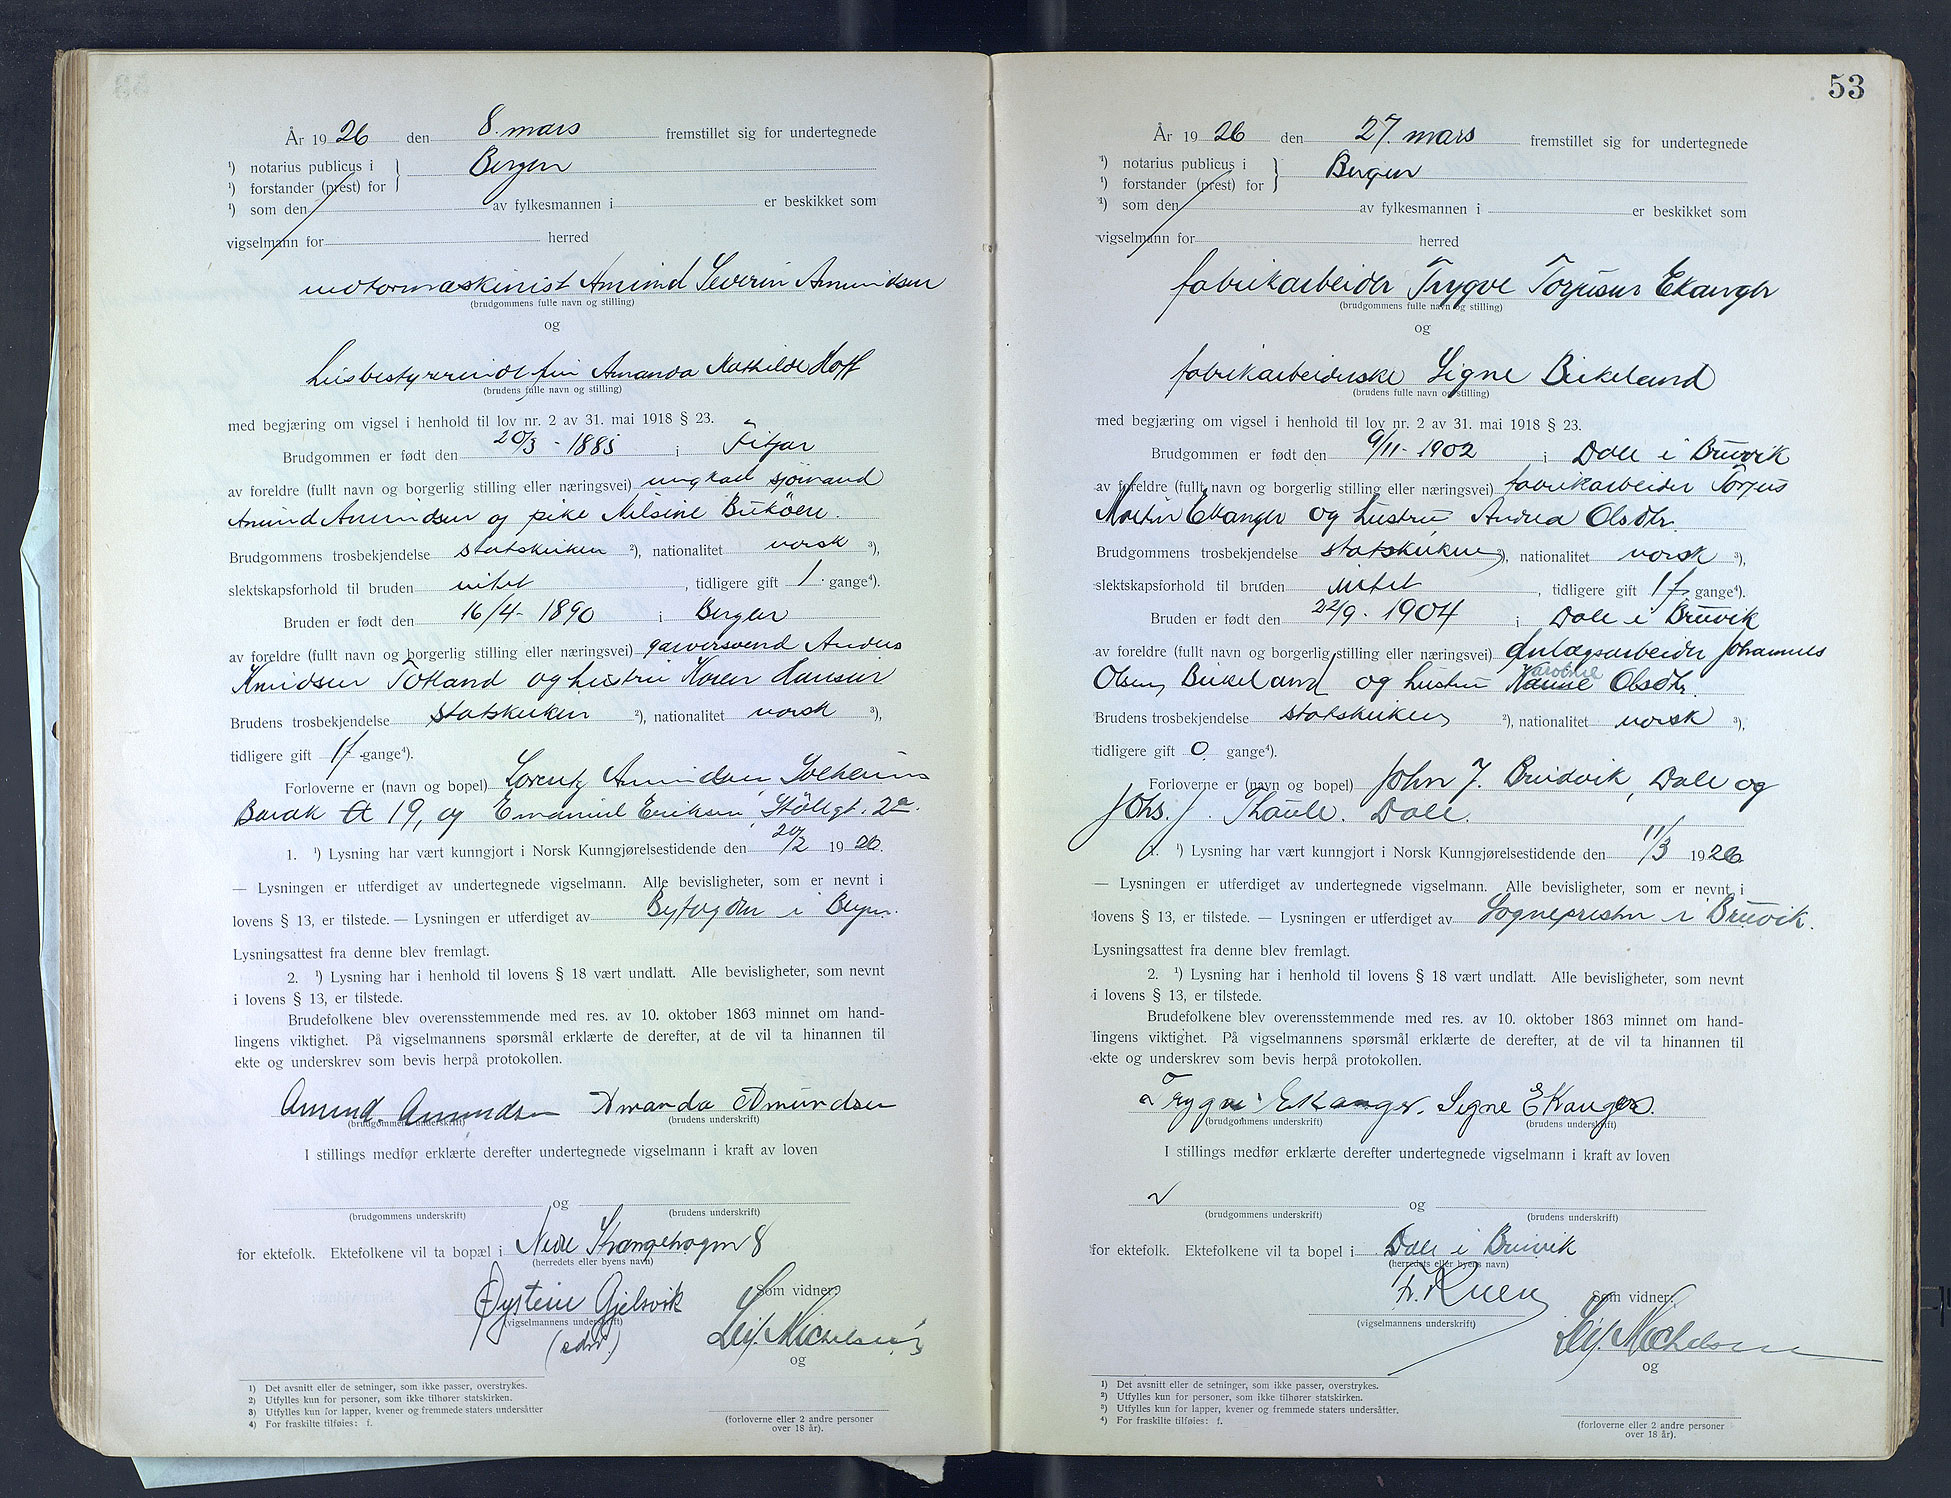 År 1926 den 8. mars fremstillet sig for undertegnede
¹) notarius publicus i } Bergen
¹) forstander (prest) for
¹) som den av fylkesmannen i er beskikket som
vigselmann for herred
motormaskinist Amund Severin Amundsen
(brudgommens fulle navn og stilling)
og
husbestyrerinde fru Amanda Mathilde Hoff
(brudens fulle navn og stilling)
med begjæring om vigsel i henhold til lov nr. 2 av 31. mai 1918 § 23.
Brudgommen er født den 20/3 - 1885 i Fitjar
av foreldre (fullt navn og borgerlig stilling eller næringsvei) ungkarl sjømand
Amund Amundsen og pike Nilsine
Brudgommens trosbekjendelse statskirken ²), nationalitet norsk ³),
slektskapsforhold til bruden intet, tidligere gift 1 gange⁴).
Bruden er født den 16/4 - 1890 i Bergen
av foreldre (fullt navn og borgerlig stilling eller næringsvei) garversvend Anders
Knudsen Totland og hustru Karen Hansen
Brudens trosbekjendelse statskirken ²), nationalitet norsk ³),
tidligere gift 1f gange⁴).
Forloverne er (navn og bopel) Lorentz Amundsen, Solheims
Barak A 19, og Emanuel Eriksen, Stölegt. 2a.
1. ¹) Lysning har vært kunngjort i Norsk Kunngjørelsestidende den 20/2 1926.
— Lysningen er utferdiget av undertegnede vigselmann. Alle bevisligheter, som er nevnt i
lovens § 13, er tilstede. — Lysningen er utferdiget av Byfogden i Bergen.
Lysningsattest fra denne blev fremlagt.
2. ¹) Lysning har i henhold til lovens § 18 vært undlatt. Alle bevisligheter, som nevnt
i lovens § 13, er tilstede.
Brudefolkene blev overensstemmende med res. av 10. oktober 1863 minnet om hand-
lingens viktighet. På vigselmannens spørsmål erklærte de derefter, at de vil ta hinannen til
ekte og underskrev som bevis herpå protokollen.
Amund Amundsen Amanda Amundsen
(brudgommens underskrift) (brudens underskrift)
I stillings medfør erklærte derefter undertegnede vigselmann i kraft av loven
og
(brudgommens underskrift) (brudens underskrift)
for ektefolk. Ektefolkene vil ta bopæl i Nedre Strangehagen 8
(herredets eller byens navn)
Øystein Gjelsvik Som vidner:
(vigselmannens underskrift)
(edsv.) Leif Michelsen
og
1) Det avsnitt eller de setninger, som ikke passer, overstrykes.
2) Utfylles kun for personer, som ikke tilhører statskirken.
3) Utfylles kun for lapper, kvener og fremmede staters undersåtter
4) For fraskilte tilføies: f.
(forloverne eller 2 andre personer
over 18 år).
53
År 1926 den 27. mars fremstillet sig for undertegnede
¹) notarius publicus i } Bergen
¹) forstander (prest) for
¹) som den av fylkesmannen i er beskikket som
vigselmann for herred
fabrikarbeider Trygve Torjusen Ekanger
(brudgommens fulle navn og stilling)
og
fabrikarbeiderske Signe Birkeland
(brudens fulle navn og stilling)
med begjæring om vigsel i henhold til lov nr. 2 av 31. mai 1918 § 23.
Brudgommen er født den 9/11 - 1902 i Dale i Bruvik
av foreldre (fullt navn og borgerlig stilling eller næringsvei) fabrikarbeider Torjus
Martin Ekanger og hustru Andrea Olsdtr.
Brudgommens trosbekjendelse statskirken ²), nationalitet norsk ³),
slektskapsforhold til bruden intet, tidligere gift 1f gange⁴).
Bruden er født den 22/9 - 1904 i Dale i Bruvik
av foreldre (fullt navn og borgerlig stilling eller næringsvei) Anlægsarbeider Johannes
Olsen Birkeland og hustru Olsdtr.
Brudens trosbekjendelse statskirken ²), nationalitet norsk ³),
tidligere gift 0 gange⁴).
Forloverne er (navn og bopel) John J. Bruvik, Dale og
Johs. J. Thaule. Dale.
1. ¹) Lysning har vært kunngjort i Norsk Kunngjørelsestidende den 11/3 1926
— Lysningen er utferdiget av undertegnede vigselmann. Alle bevisligheter, som er nevnt i
lovens § 13, er tilstede. — Lysningen er utferdiget av Sognepresten i Bruvik.
Lysningsattest fra denne blev fremlagt.
2. ¹) Lysning har i henhold til lovens § 18 vært undlatt. Alle bevisligheter, som nevnt
i lovens § 13, er tilstede.
Brudefolkene blev overensstemmende med res. av 10. oktober 1863 minnet om hand-
lingens viktighet. På vigselmannens spørsmål erklærte de derefter, at de vil ta hinannen til
ekte og underskrev som bevis herpå protokollen.
Trygve Ekanger. Signe Ekanger.
(brudgommens underskrift) (brudens underskrift)
I stillings medfør erklærte derefter undertegnede vigselmann i kraft av loven
og
(brudgommens underskrift) (brudens underskrift)
for ektefolk. Ektefolkene vil ta bopel i Dale i Bruvik
(herredets eller byens navn)
Som vidner:
(vigselmannens underskrift) Leif Michelsen
og
1) Det avsnitt eller de setninger, som ikke passer, overstrykes.
2) Utfylles kun for personer, som ikke tilhører statskirken.
3) Utfylles kun for lapper, kvener og fremmede staters undersåtter.
4) For fraskilte tilføies: f.
(forloverne eller 2 andre personer
over 18 år).